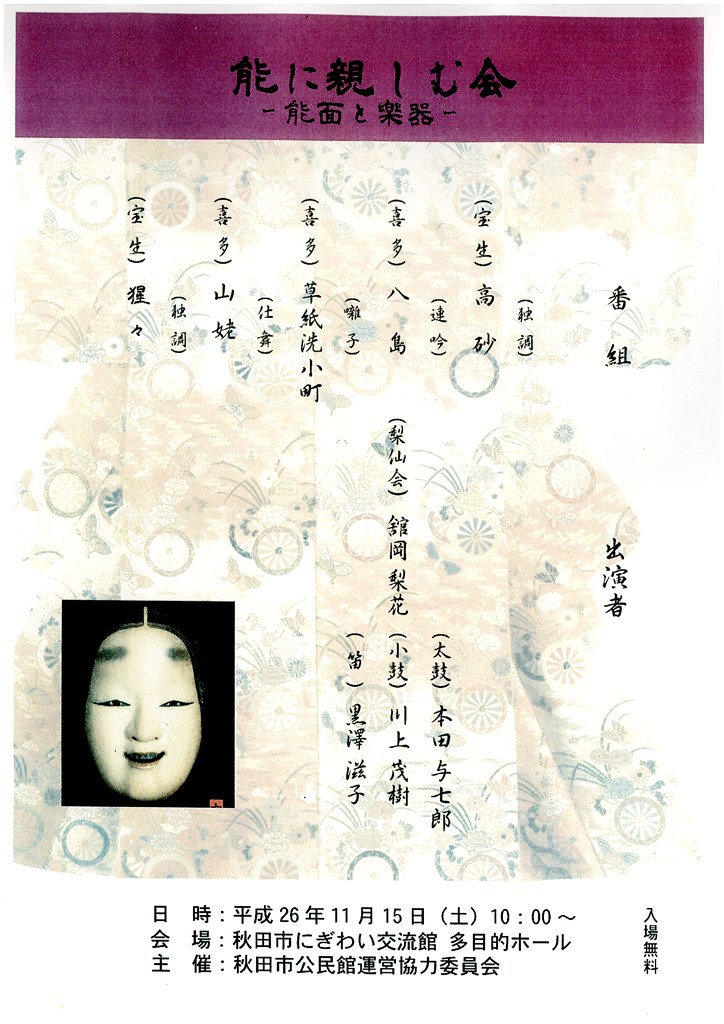 能に親しむ会
－能面と楽器－
番組
出演者
(独調)
(宝生) 高砂
(連吟)
(喜多) 八島
(囃子)
(喜多) 草紙洗小町
(仕舞)
(喜多) 山姥
(独調)
(宝生) 猩々
(梨仙会) 舘岡梨花
(太鼓) 本田与七郎
(小鼓) 川上茂樹
(笛) 黒澤滋子
日　時：平成26年11月15日（土）10：00～
会　場：秋田市にぎわい交流館 多目的ホール
主　催：秋田市公民館運営協力委員会
入場無料